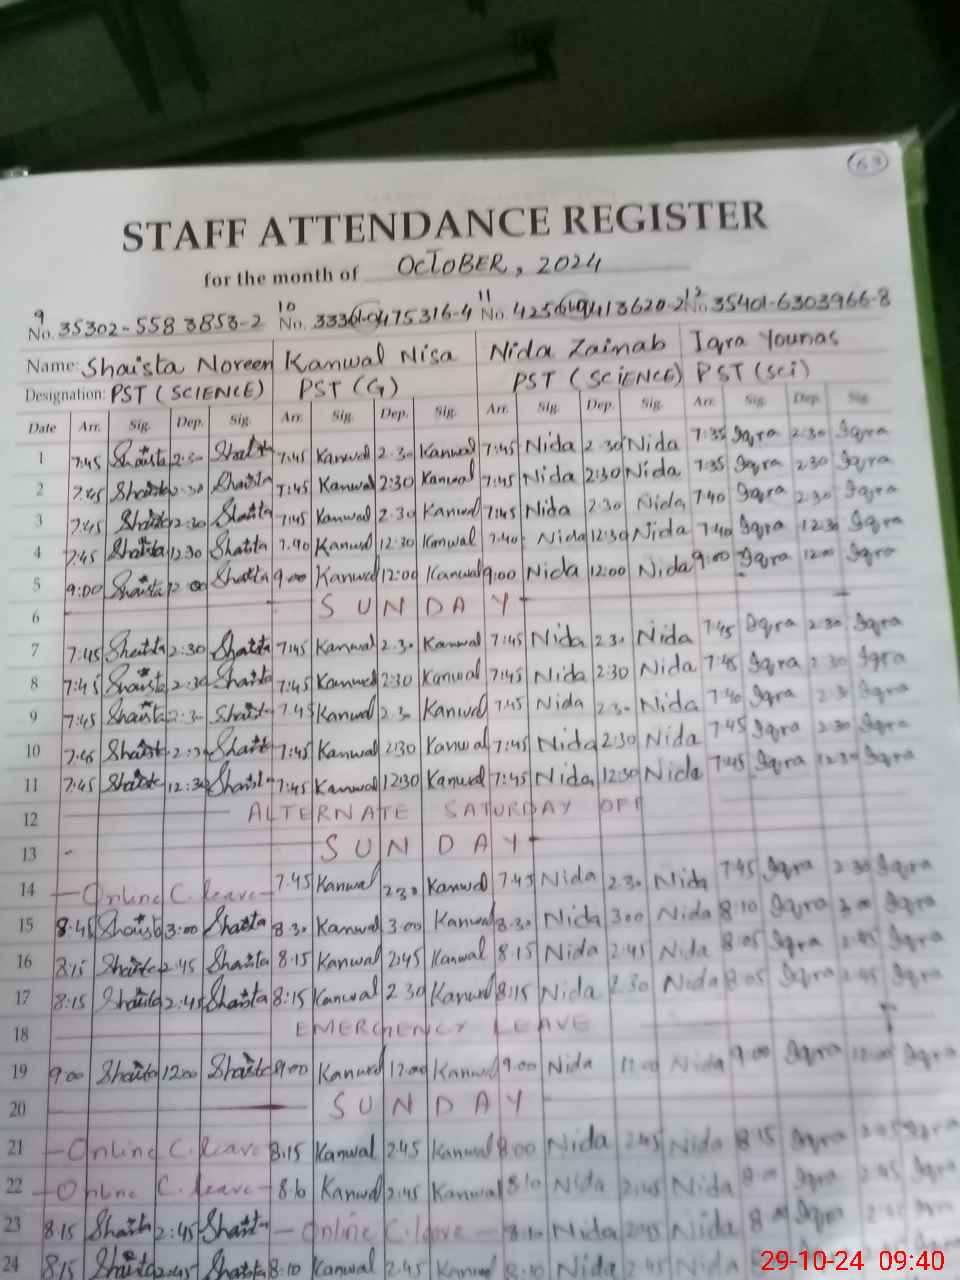 63
STAFF ATTENDANCE REGISTER
for the month of OCTOBER, 2024
9 No. 35302-5583853-2 10 No. 11 No. 12 No. 35401-6303966-8
Name: Shaista Noreen Kanwal Nisa Nida Zainab Iqra Younas
Designation: PST (SCIENCE) PST (G) PST (SCIENCE) PST (sci)
Date Arr. Sig. Dep. Sig. Arr. Sig. Dep. Sig. Arr. Sig. Dep. Sig. Arr. Sig. Dep. Sig.
1 7:45 Shaista 2:30 Shaista 7:45 Kanwal 2:30 Kanwal 7:45 Nida 2:30 Nida 7:35 Iqra 2:30 Iqra
2 7:45 Shaista 2:30 Shaista 7:45 Kanwal 2:30 Kanwal 7:45 Nida 2:30 Nida 7:35 Iqra 2:30 Iqra
3 7:45 Shaista 2:30 Shaista 7:45 Kanwal 2:30 Kanwal 7:45 Nida 2:30 Nida 7:40 Iqra 2:30 Iqra
4 7:45 Shaista 12:30 Shaista 7:40 Kanwal 12:30 Kanwal 7:40 Nida 12:30 Nida 7:40 Iqra 12:30 Iqra
5 9:00 Shaista 12:00 Shaista 9:00 Kanwal 12:00 Kanwal 9:00 Nida 12:00 Nida 9:00 Iqra 12:00 Iqra
6 SUNDAY
7 7:45 Shaista 2:30 Shaista 7:45 Kanwal 2:30 Kanwal 7:45 Nida 2:30 Nida 7:45 Iqra 2:30 Iqra
8 7:45 Shaista 2:30 Shaista 7:45 Kanwal 2:30 Kanwal 7:45 Nida 2:30 Nida 7:45 Iqra 2:30 Iqra
9 7:45 Shaista 2:30 Shaista 7:45 Kanwal 2:30 Kanwal 7:45 Nida 2:30 Nida 7:40 Iqra 2:30 Iqra
10 7:45 Shaista 2:30 Shaista 7:45 Kanwal 2:30 Kanwal 7:45 Nida 2:30 Nida 7:45 Iqra 2:30 Iqra
11 7:45 Shaista 12:30 Shaista 7:45 Kanwal 12:30 Kanwal 7:45 Nida 12:30 Nida 7:45 Iqra 12:30 Iqra
12 ALTERNATE SATURDAY OFF
13 SUNDAY
14 Online C. leave 7:45 Kanwal 2:30 Kanwal 7:45 Nida 2:30 Nida 7:45 Iqra 2:30 Iqra
15 8:45 Shaista 3:00 Shaista 8:30 Kanwal 3:00 Kanwal 8:30 Nida 3:00 Nida 8:10 Iqra 3:00 Iqra
16 8:15 Shaista 2:45 Shaista 8:15 Kanwal 2:45 Kanwal 8:15 Nida 2:45 Nida 8:05 Iqra 2:45 Iqra
17 8:15 Shaista 2:45 Shaista 8:15 Kanwal 2:30 Kanwal 8:15 Nida 2:30 Nida 8:05 Iqra 2:45 Iqra
18 EMERGENCY LEAVE
19 9:00 Shaista 12:00 Shaista 9:00 Kanwal 12:00 Kanwal 9:00 Nida 12:00 Nida 9:00 Iqra 12:00 Iqra
20 SUNDAY
21 Online C. leave 8:15 Kanwal 2:45 Kanwal 8:00 Nida 2:45 Nida 8:15 Iqra 2:45 Iqra
22 Online C. leave 8:10 Kanwal 2:45 Kanwal 8:10 Nida 2:45 Nida Iqra 2:45 Iqra
23 8:15 Shaista 2:45 Shaista Online C. leave 8:10 Nida 2:45 Nida Iqra Iqra
24 8:15 Shaista 2:45 Shaista 8:10 Kanwal 2:45 Kanwal 8:10 Nida 2:45 Nida
29-10-24 09:40